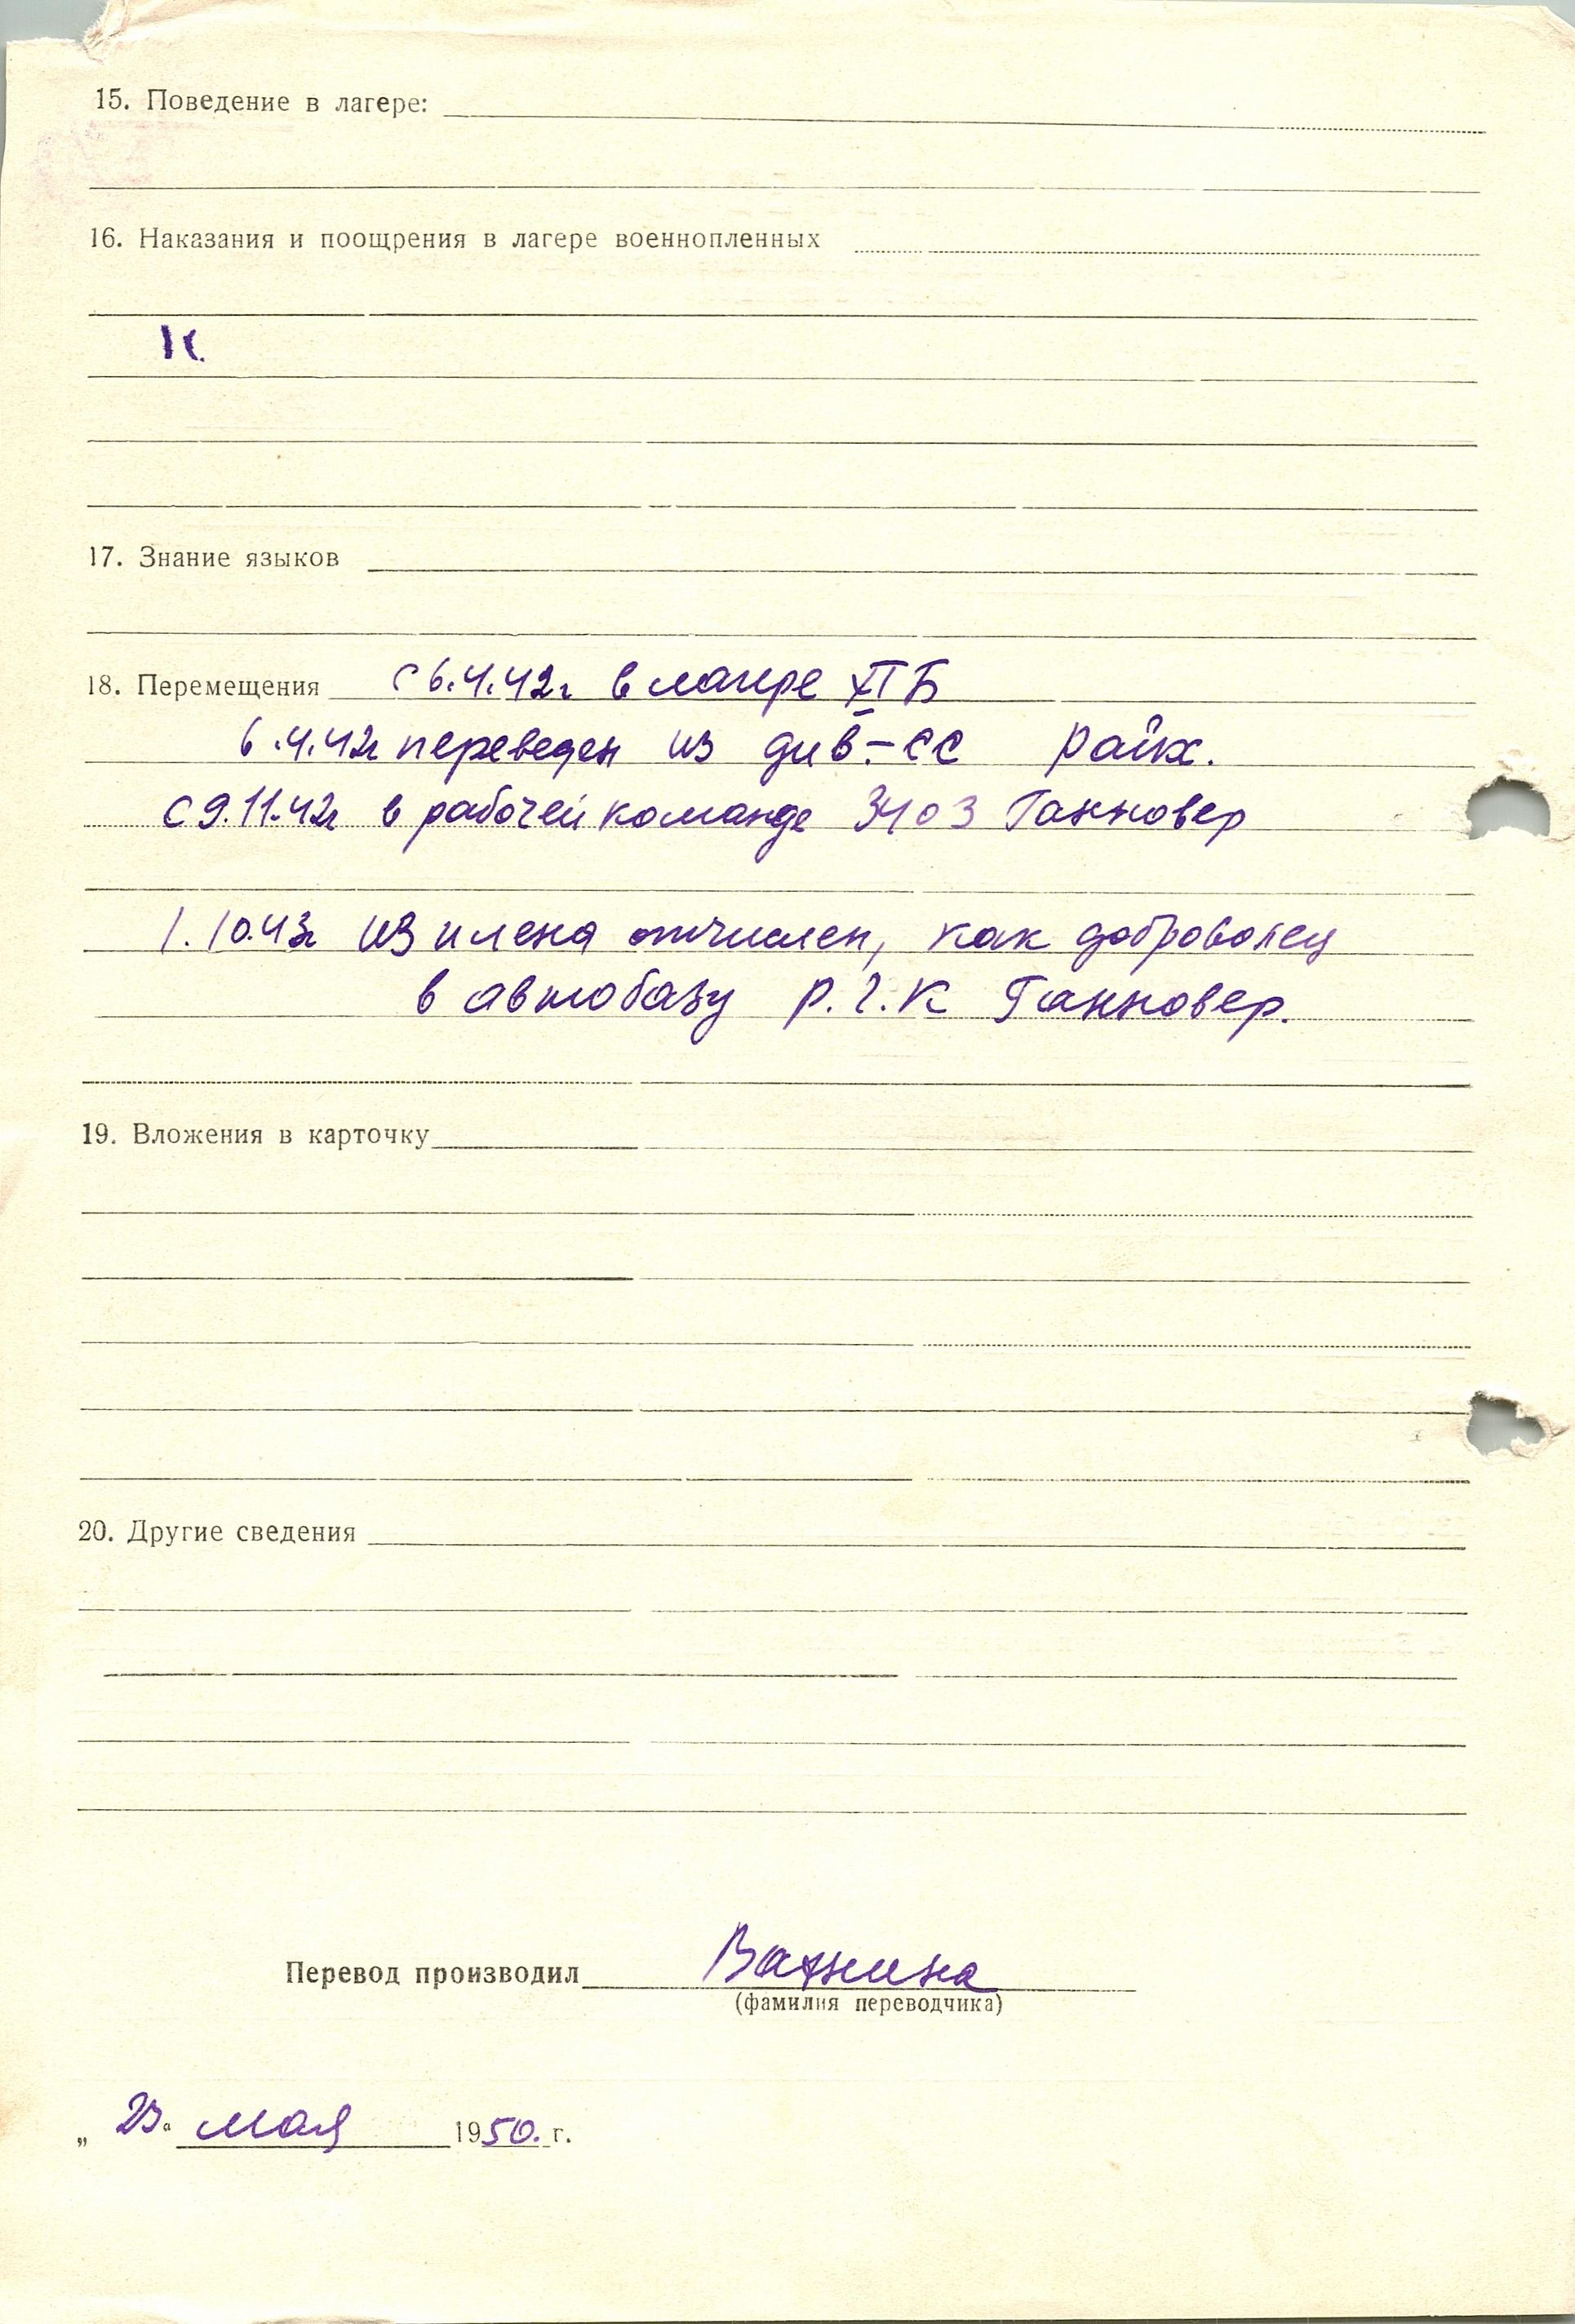 15. Поведение в лагере:
16. Наказания и поощрения в лагере военнопленных
К
17. Знание языков
18. Перемещения с 6.4.42г в лагере XI Б
6.4.42г переведен из див.-СС Райх.
С 9.11.42г в рабочей команде 3403 Ганновер
1.10.43г из плена отчислен, как доброволец
в автобазу Р.Г.К Ганновер.
19. Вложения в карточку
20. Другие сведения
Перевод производил
(фамилия переводчика)
„ 23 " мая 1950. г.